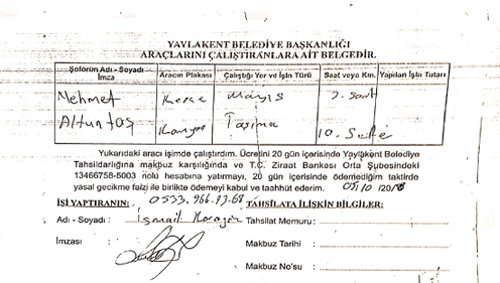 YAYLAKENT BELEDİYE BAŞKANLIĞI
ARAÇLARINI ÇALIŞTIRANLARA AİT BELGEDİR.
Şoförün Adı - Soyadı İmza Aracın Plakası Çalıştığı Yer ve İşin Türü Saat veya Km. Yapılan İşin Tutarı
Mehmet Mayıs
Altuntaş Taşıma 10.
Yukarıdaki aracı işimde çalıştırdım. Ücretini 20 gün içerisinde Yaylakent Belediye
Tahsildarlığına makbuz karşılığında ve T.C. Ziraat Bankası Orta Şubesindeki
13466758-5003 nolu hesabına yatırmayı, 20 gün içerisinde ödemediğim taktirde
yasal gecikme faizi ile birlikte ödemeyi kabul ve taahhüt ederim.
İŞİ YAPTIRANIN: 0533.966 TAHSİLATA İLİŞKİN BİLGİLER:
Adı - Soyadı : İsmail Tahsilat Memuru:
İmzası :
Makbuz Tarihi :
Makbuz No'su :